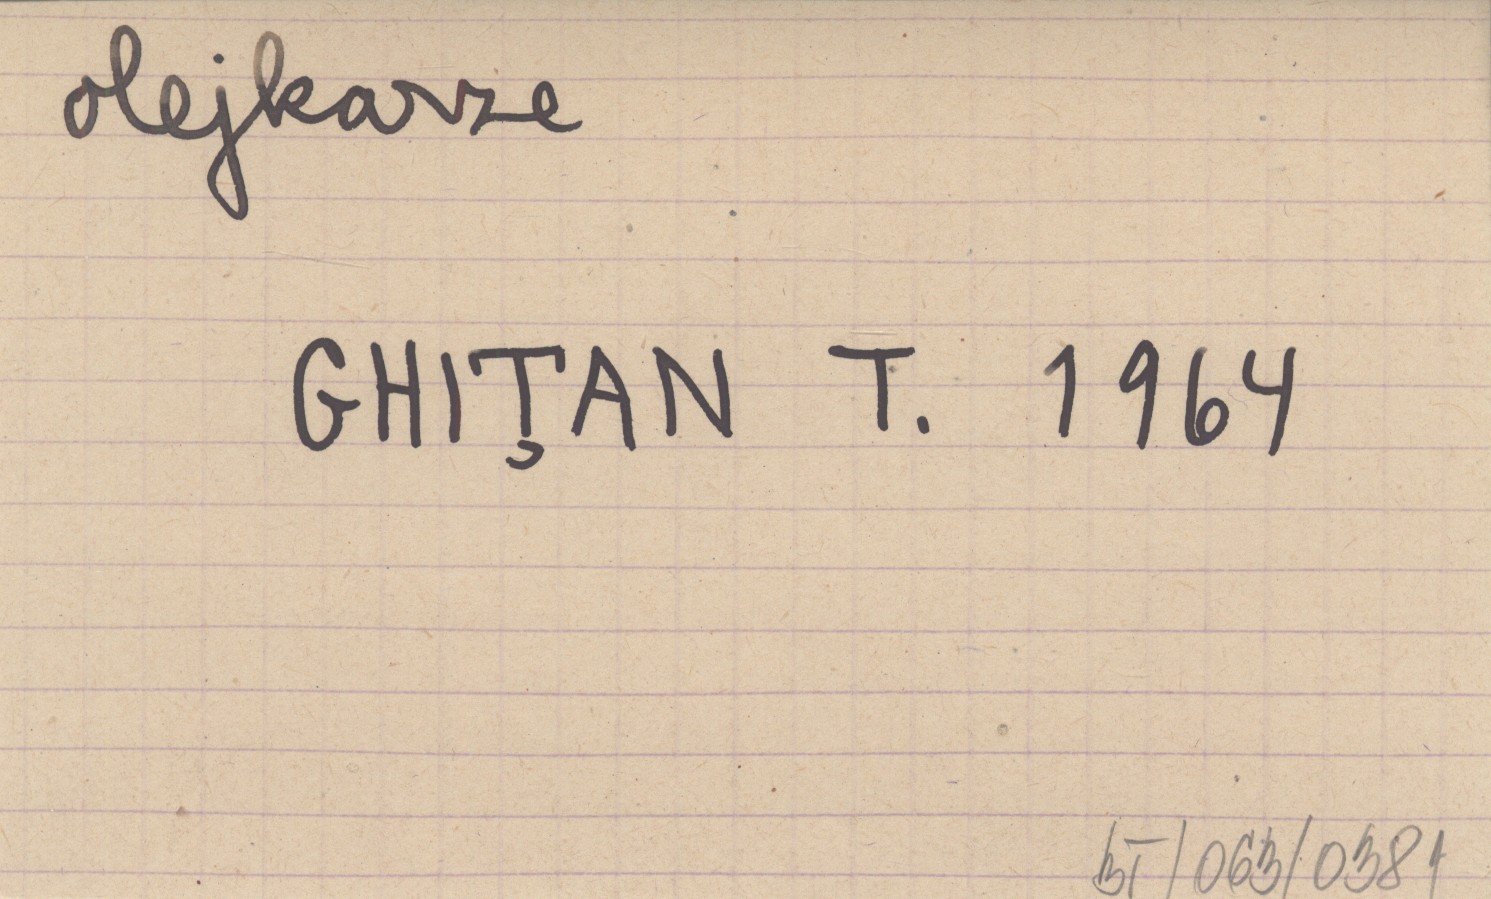 olejkarze
GHIŢAN T. 1964
BT/063/0381